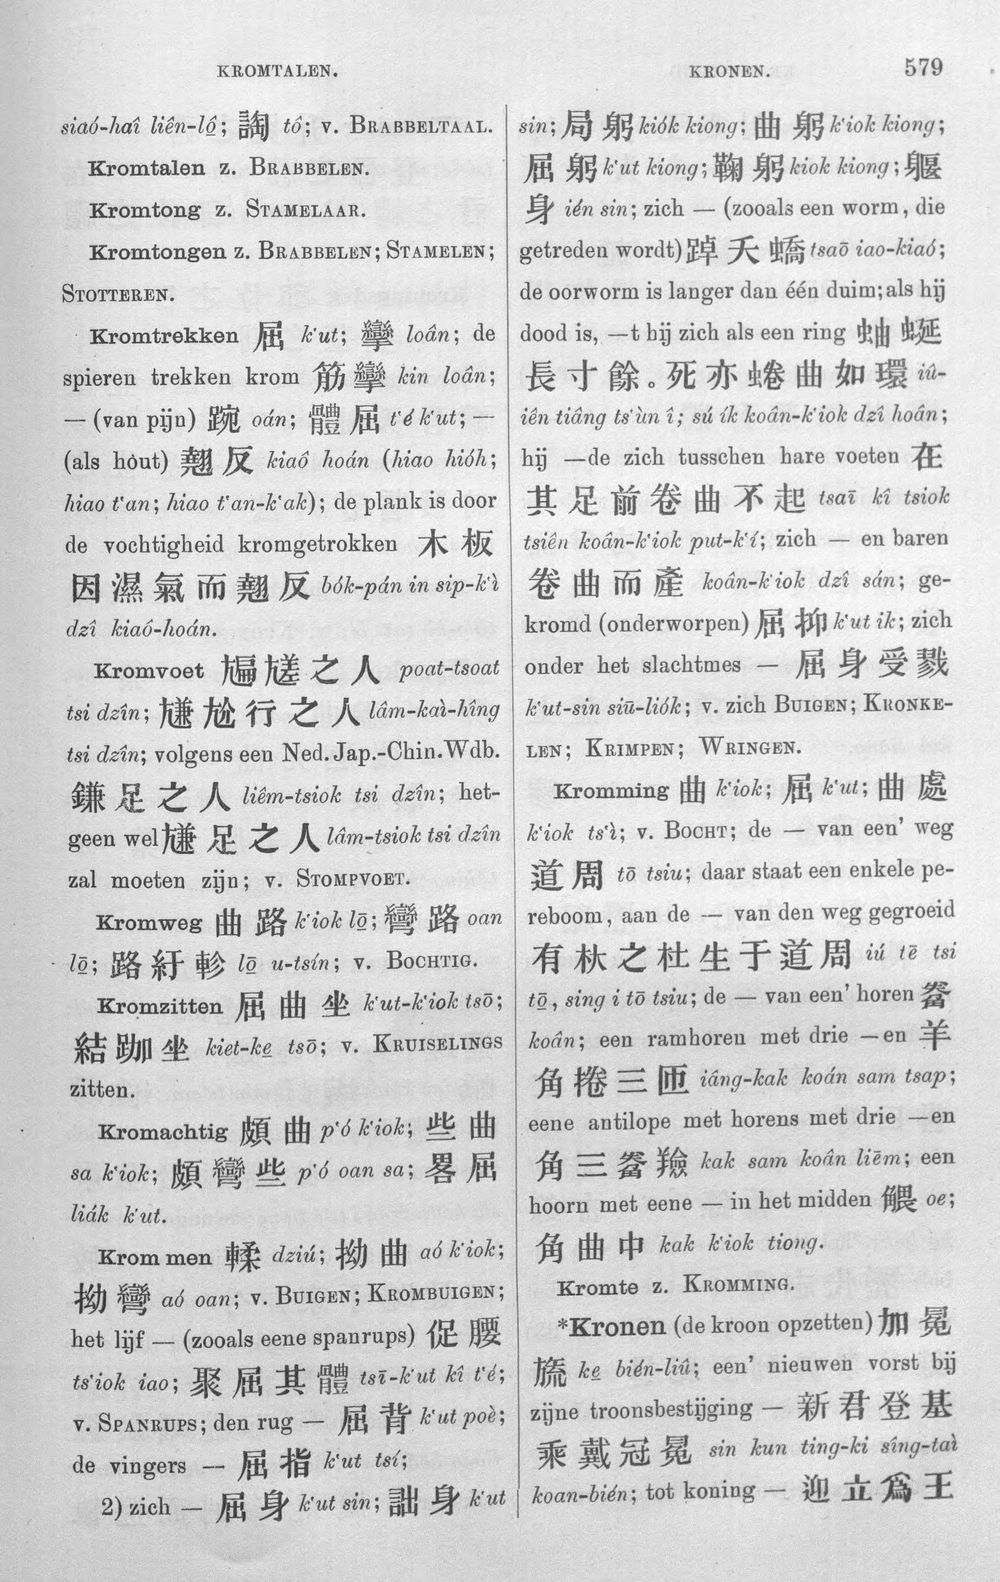 KROMTALEN.
KRONEN.
579
siaó-haî liên-lô̤; 謅 tô; v. BRABBELTAAL.
Kromtalen z. BRABBELEN.
Kromtong z. STAMELAAR.
Kromtongen z. BRABBELEN; STAMELEN;
STOTTEREN.
Kromtrekken 屈 k‘ut; 攣 loân; de
spieren trekken krom 筋攣 kin loân;
— (van pijn) 踠 oán; 體屈 t‘é k‘ut; —
(als hout) 翹反 kiaô hoán (hiao hióh;
hiao t‘an; hiao t‘an-k‘ak); de plank is door
de vochtigheid kromgetrokken 木板
因濕氣而翹反 bók-pán in sip-k‘ì
dzî kiaô-hoán.
Kromvoet 之人 poat-tsoat
tsi dzîn; 尲尬行之人 lâm-kaì-hîng
tsi dzîn; volgens een Ned. Jap.-Chin. Wdb.
鎌足之人 liêm-tsiok tsi dzîn; het-
geen wel 尲足之人 lâm-tsiok tsi dzîn
zal moeten zijn; v. STOMPVOET.
Kromweg 曲路 k‘iok lō; 彎路 oan
lō; 路紆軫 lō u-tsín; v. BOCHTIG.
Kromzitten 屈曲坐 k‘ut-k‘iok tsō;
結跏坐 kiet-ke tsō; v. KRUISELINGS
zitten.
Kromachtig 頗曲 p‘ó k‘iok; 些曲
sa k‘iok; 頗彎些 p‘ó oan sa; 畧屈
liák k‘ut.
Krommen 輮 dziú; 拗曲 aó k‘iok;
拗彎 aó oan; v. BUIGEN; KROMBUIGEN;
het lijf — (zooals eene spanrups) 促腰
ts‘iok iao; 聚屈其體 tsī-k‘ut kî t‘é;
v. SPANRUPS; den rug — 屈背 k‘ut poè;
de vingers — 屈指 k‘ut tsí;
2) zich — 屈身 k‘ut sin; 詘身 k‘ut
sin; 局躬 kiók kiong; 曲躬 k‘iok kiong;
屈躬 k‘ut kiong; 鞠躬 kiok kiong; 躽
身 ién sin; zich — (zooals een worm, die
getreden wordt) 踔夭蟜 tsaō iao-kiaó;
de oorworm is langer dan één duim; als hij
dood is, —t hij zich als een ring 蚰蜒
長寸餘。死亦蜷曲如環 iû-
iên tiâng ts‘ùn î; sú ík koân-k‘iok dzî hoân;
hij —de zich tusschen hare voeten 在
其足前卷曲不起 tsaī kî tsiok
tsiên koân-k‘iok put-k‘í; zich — en baren
卷曲而產 koân-k‘iok dzî sán; ge-
kromd (onderworpen) 屈抑 k‘ut ik; zich
onder het slachtmes — 屈身受戮
k‘ut-sin siū-liók; v. zich BUIGEN; KRONKE-
LEN; KRIMPEN; WRINGEN.
Kromming 曲 k‘iok; 屈 k‘ut; 曲處
k‘iok ts‘ì; v. BOCHT; de — van een’ weg
道周 tō tsiu; daar staat een enkele pe-
reboom, aan de — van den weg gegroeid
有杕之杜生于道周 iú tē tsi
tō, sing i tō tsiu; de — van een’ horen 觠
koân; een ramhoren met drie —en 羊
角捲三匝 iâng-kak koán sam tsap;
eene antilope met horens met drie —en
角三觠羷 kak sam koân liēm; een
hoorn met eene — in het midden 䚈 oe;
角曲中 kak k‘iok tiong.
Kromte z. KROMMING.
*Kronen (de kroon opzetten) 加冕
旒 ke bién-liû; een’ nieuwen vorst bij
zijne troonsbestijging — 新君登基
乘戴冠冕 sin kun ting-ki sîng-taì
koan-bién; tot koning — 迎立爲王